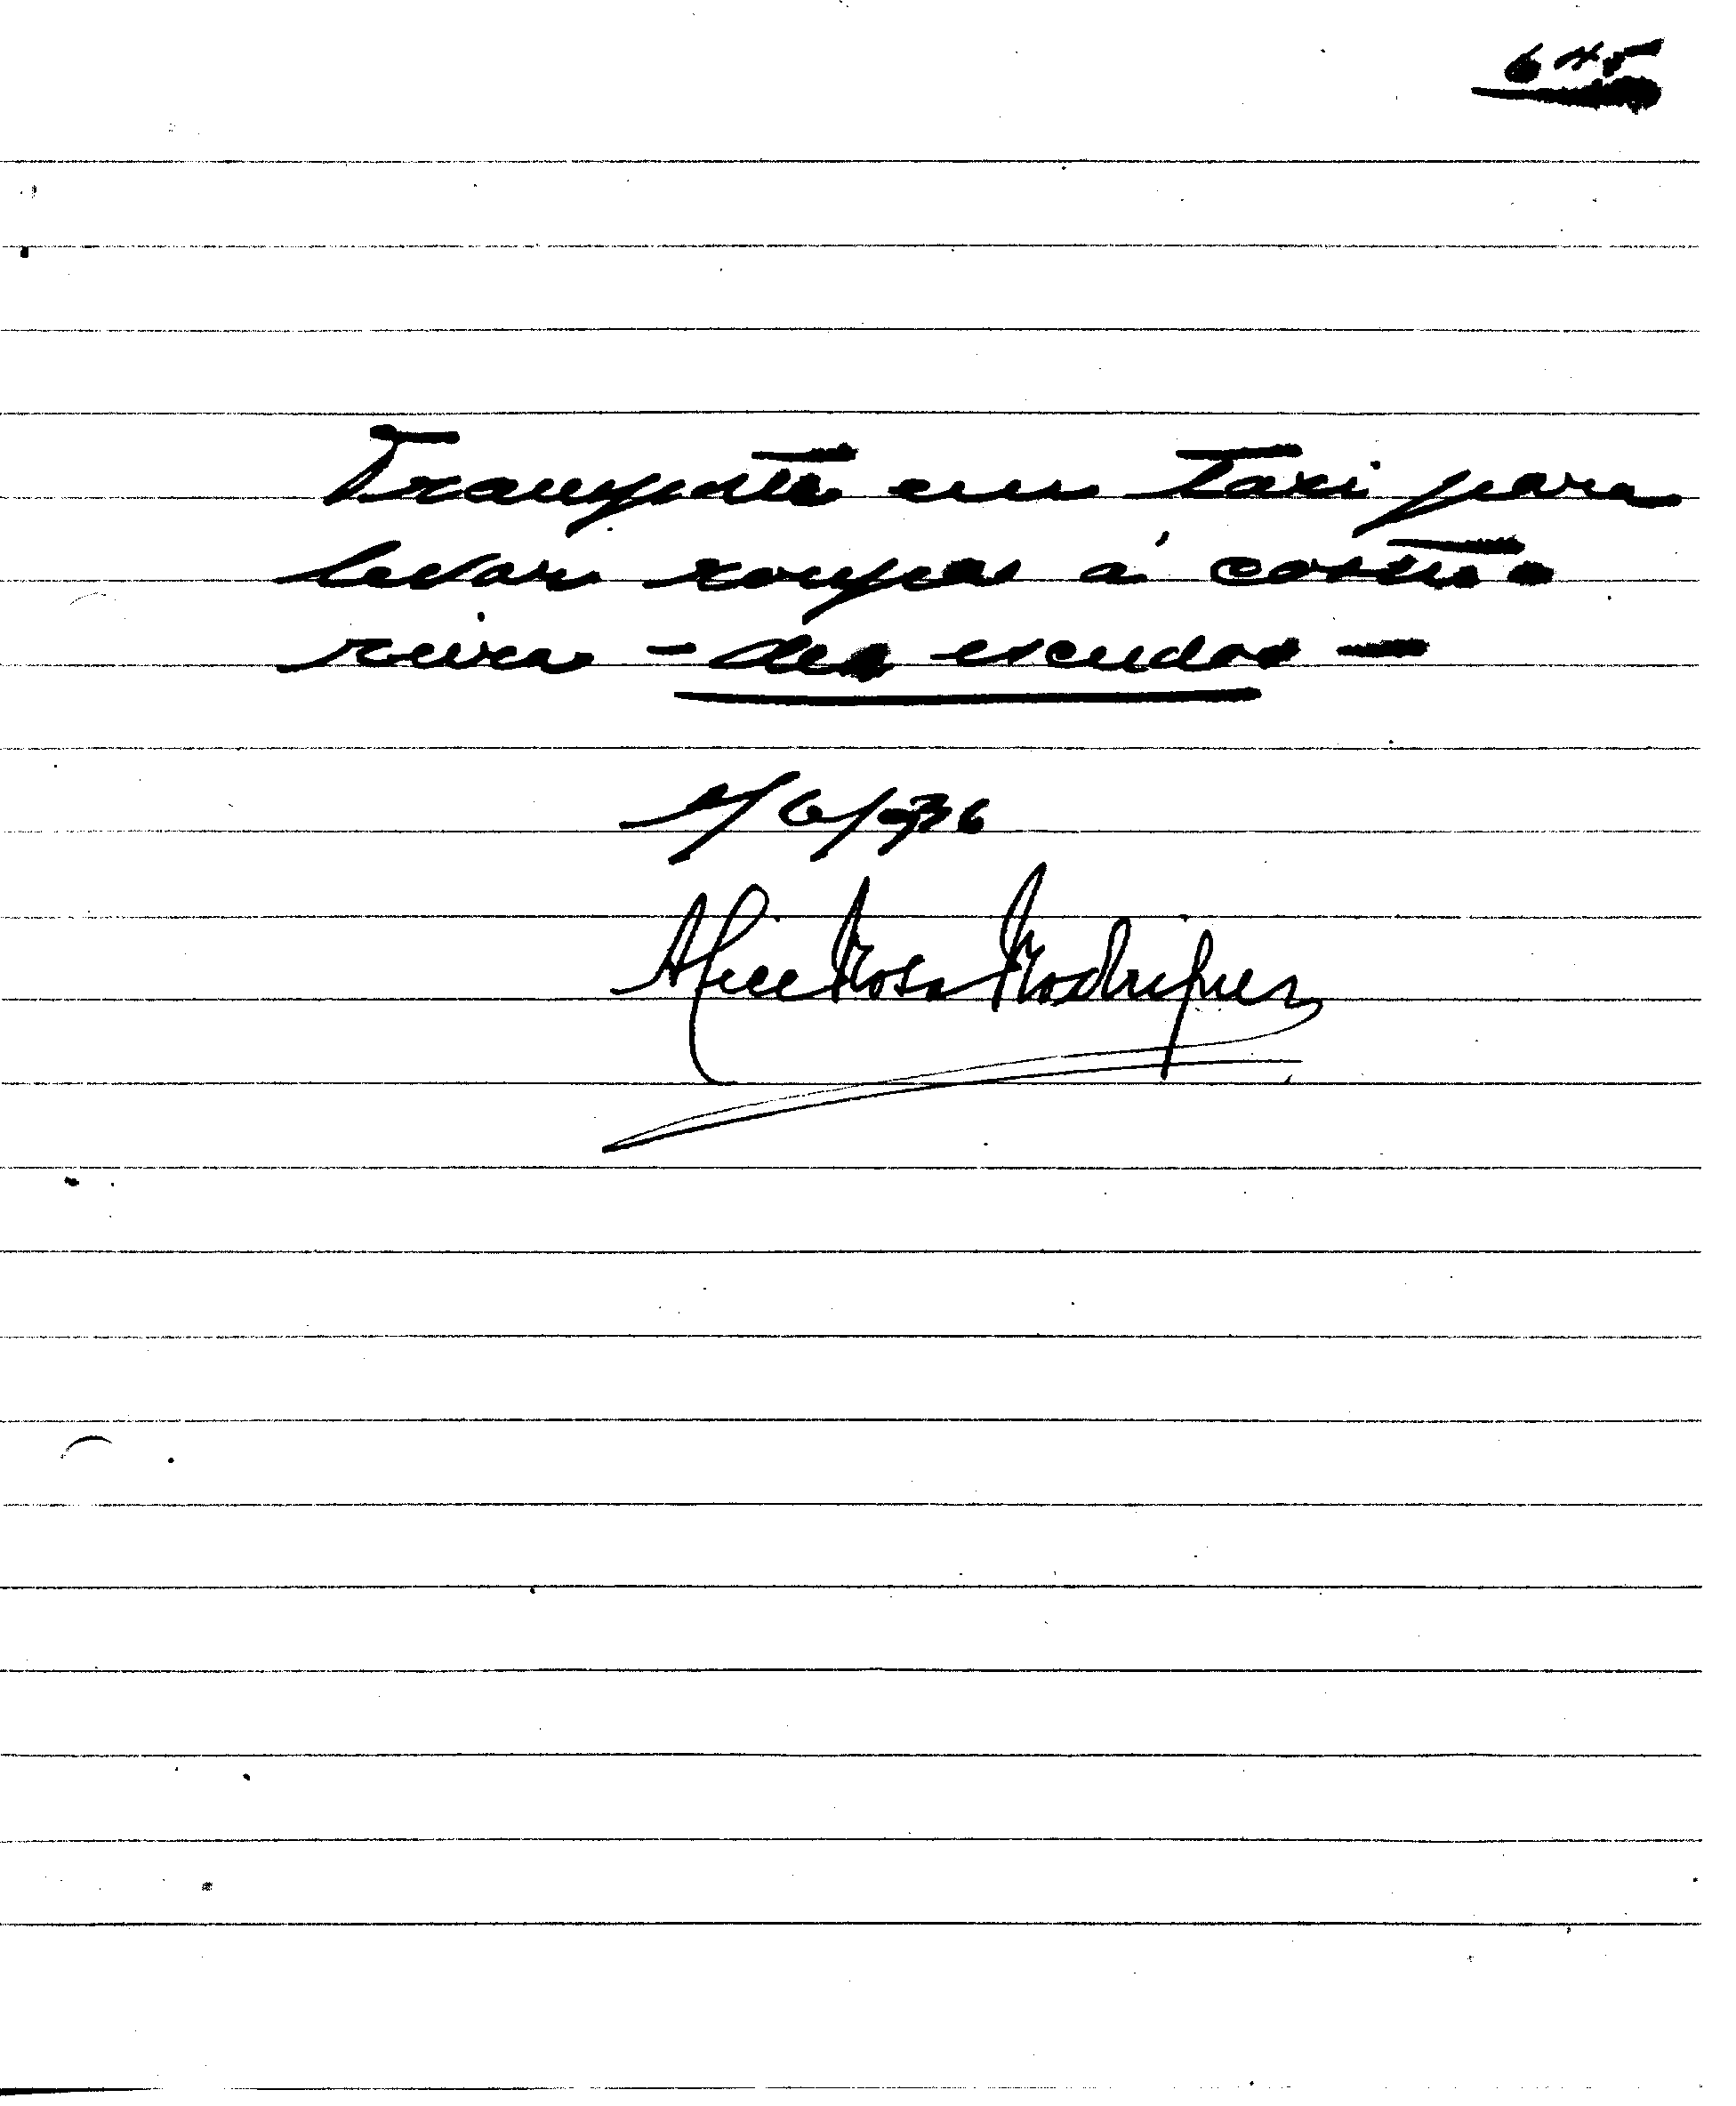 645
Transporte em taxi para
levar roupas á costu-
reira - dez escudos -
1/6/936
Alice Rosa Rodrigues